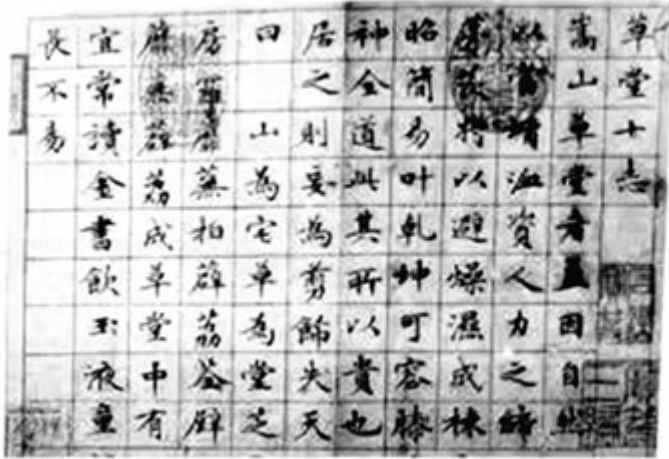 草堂十志
嵩山草堂者蓋因自然
以當墉洫資人力之締
茨將以避燥濕成棟
昭簡易叶乾坤可容膝
神全道此其所以貴也
居之則妄為剪飾失天
四 山為宅草為堂芝
房羅蘼蕪拍薜荔荃壁
蘼蕪薜荔成草堂中有
宜常讀金書飲玉液童
長不易